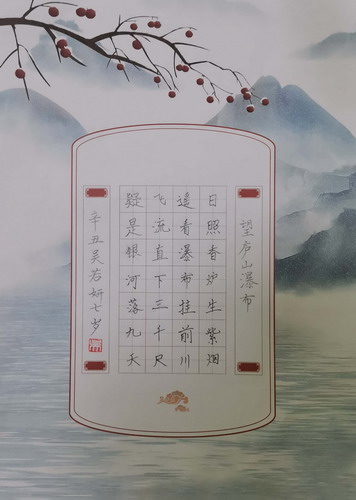 望庐山瀑布
日照香炉生紫烟
遥看瀑布挂前川
飞流直下三千尺
疑是银河落九天
辛丑吴若妍七岁